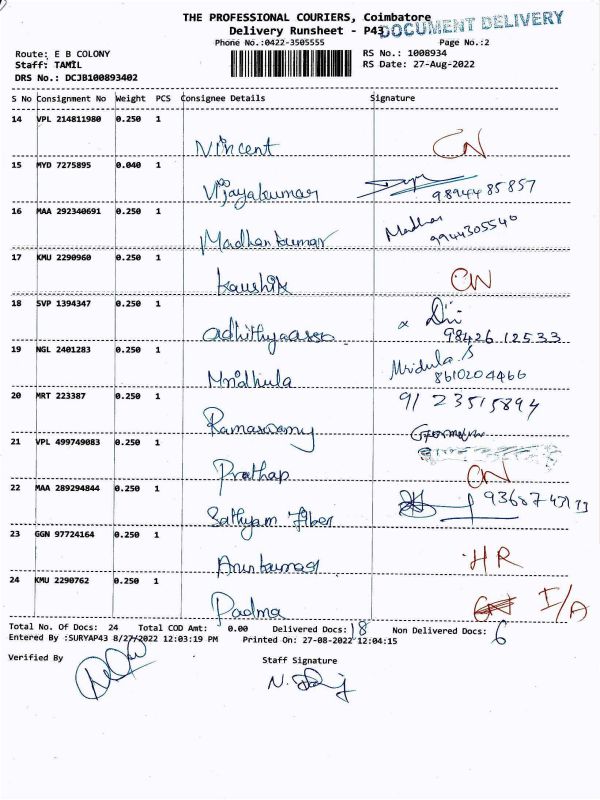 THE PROFESSIONAL COURIERS, Coimbatore
DOCUMENT DELIVERY
Delivery Runsheet - P43
Phone No.:0422-3505555 Page No.:2
Route: E B COLONY RS No.: 1008934
Staff: TAMIL RS Date: 27-Aug-2022
DRS No.: DCJB100893402
S No Consignment No Weight PCS Consignee Details Signature
14 VPL 214811980 0.250 1
Vincent CN
15 MYD 7275895 0.040 1
Vijayakumar 9894485857
16 MAA 292340691 0.250 1
Madhan kumar Madhan 9944305540
17 KMU 2290960 0.250 1
Kaushik CN
18 SVP 1394347 0.250 1
adhithyaasso 98426 12533
19 NGL 2401283 0.250 1
Mridhula Mridula.S 8610204466
20 MRT 223387 0.250 1 91 23515894
Ramaswamy
21 VPL 499749083 0.250 1
Prathap CN
22 MAA 289294844 0.250 1
Sathyam Fiber
23 GGN 97724164 0.250 1
Arunkumar HR
24 KMU 2290762 0.250 1
Padma I/A
Total No. Of Docs: 24 Total COD Amt: 0.00 Delivered Docs: 18 Non Delivered Docs: 6
Entered By :SURYAP43 8/27/2022 12:03:19 PM Printed On: 27-08-2022 12:04:15
Verified By Staff Signature